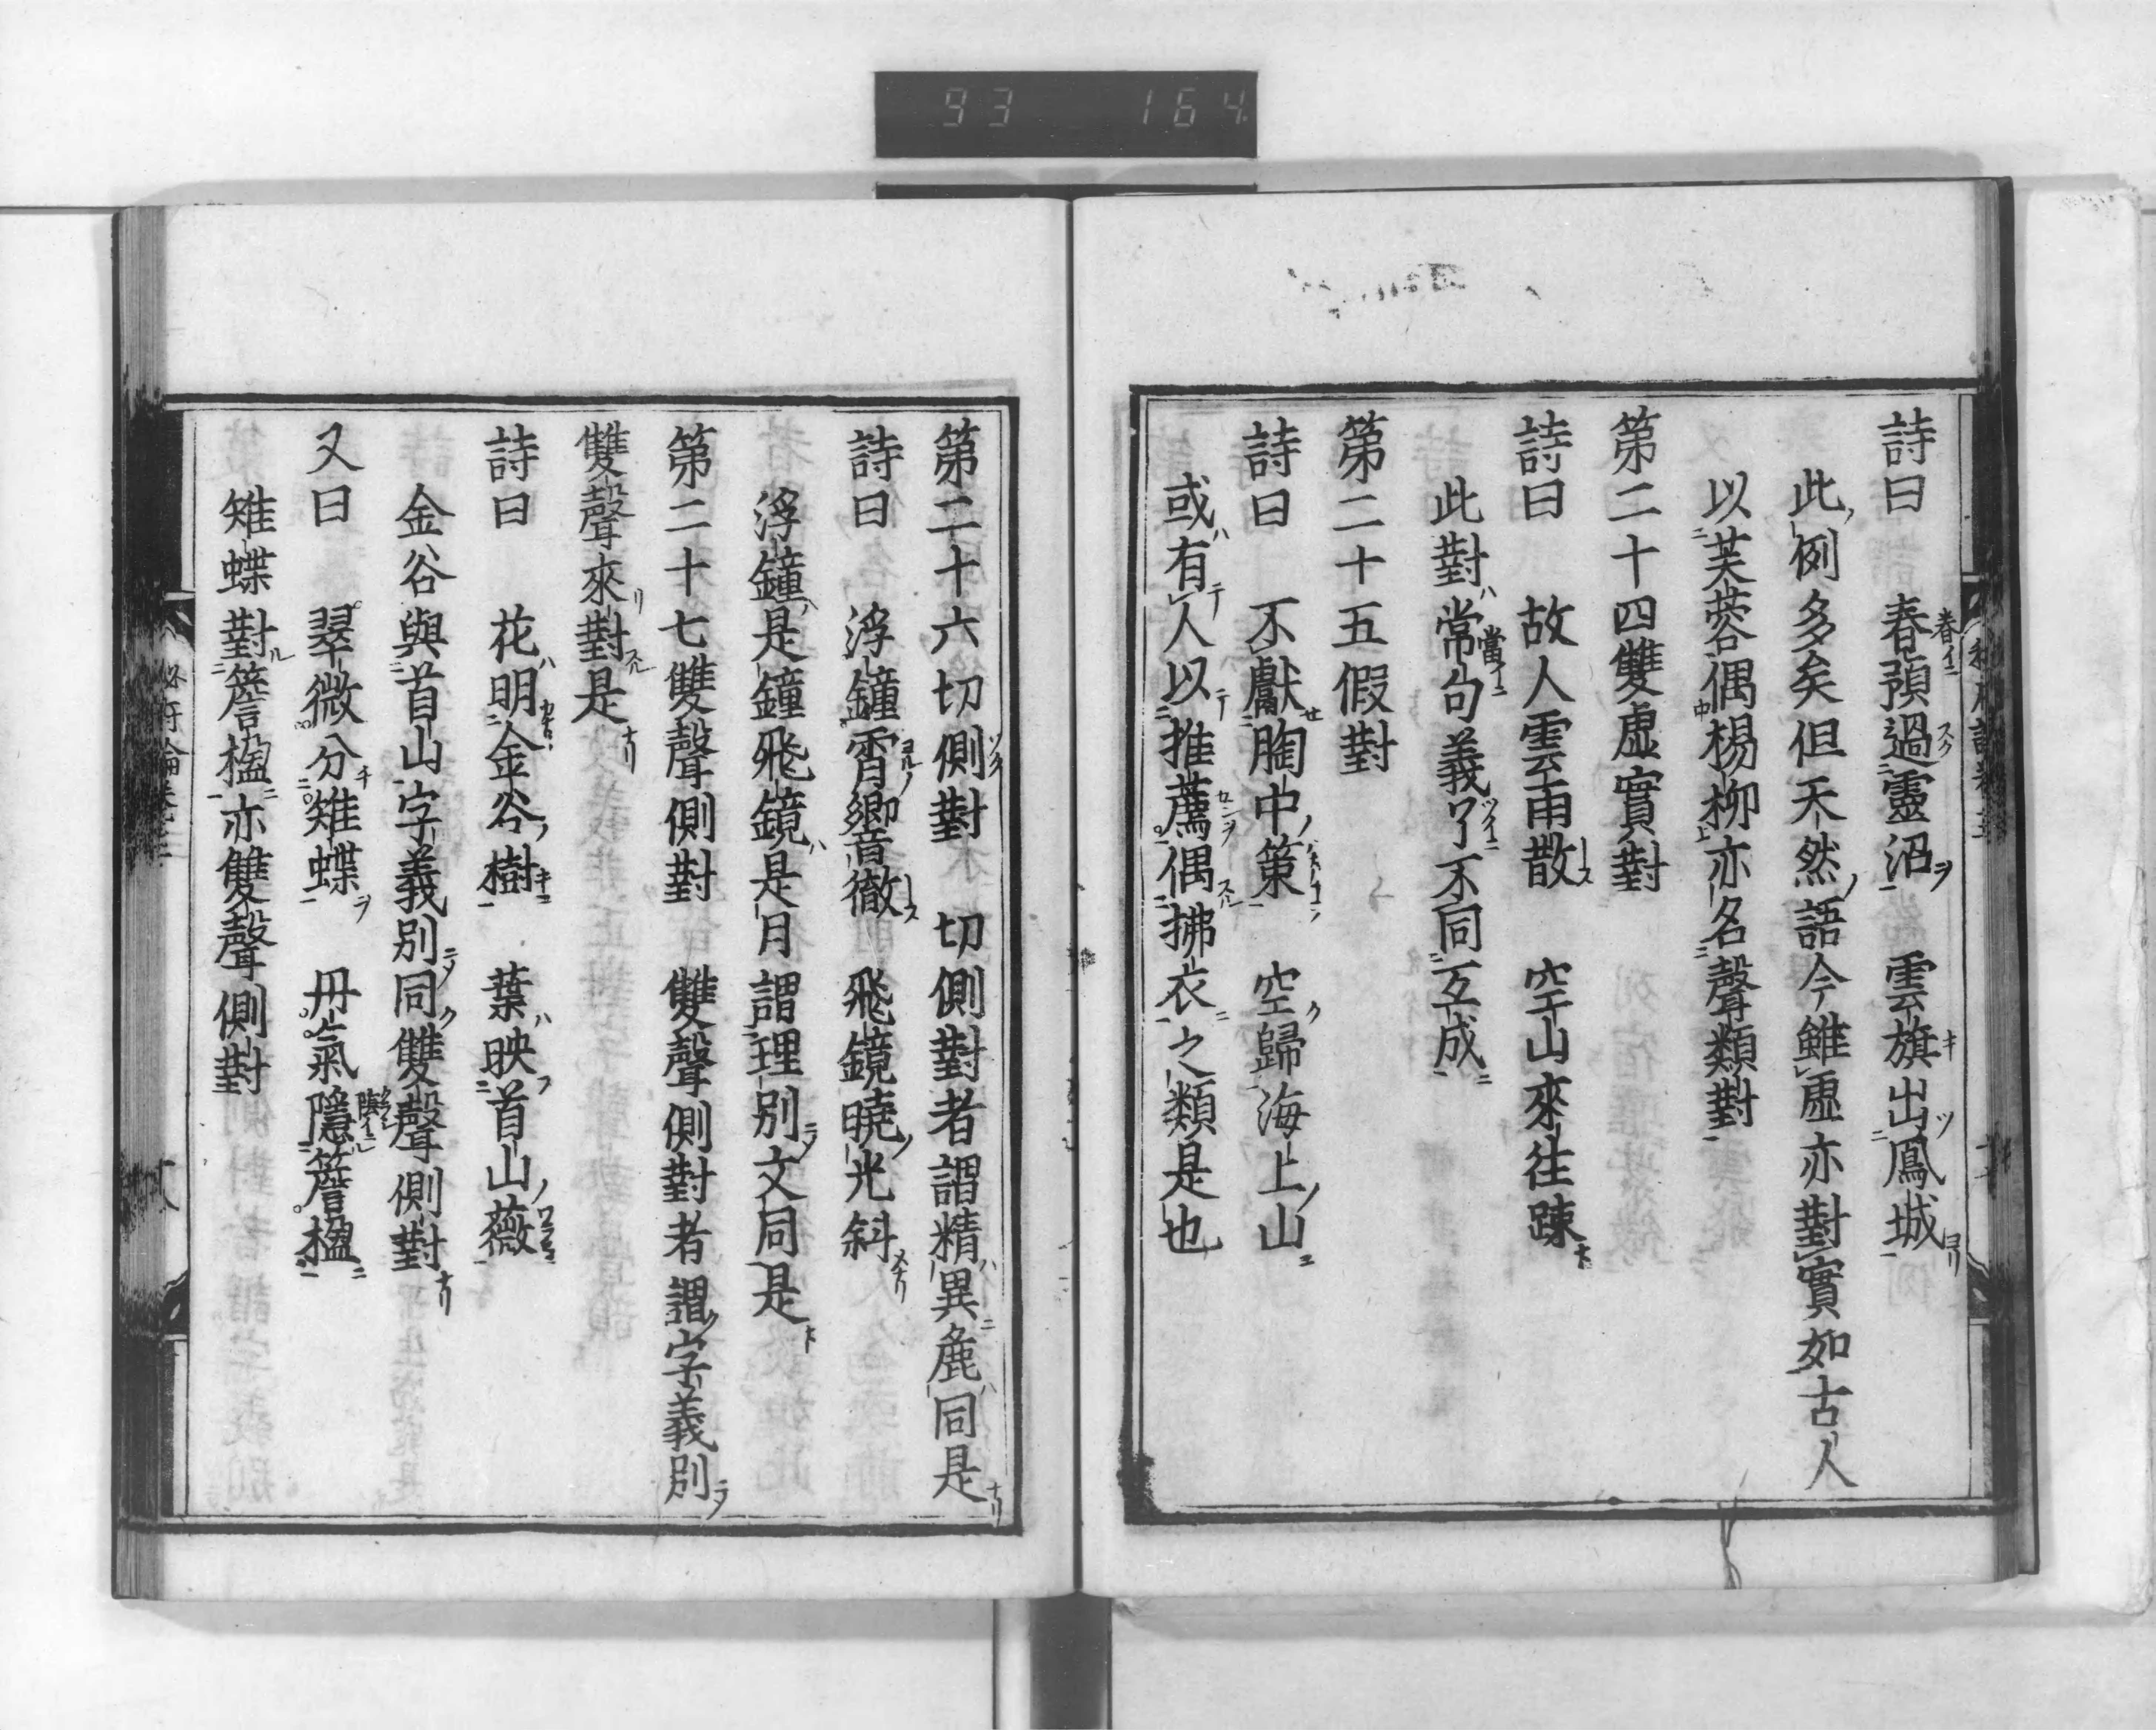 93 164
詩曰 春預過靈沼 雲旗出鳳城
此例多矣但天然語今雖虛亦對實如古人
以芙蓉偶楊柳亦名聲類對
第二十四雙虛實對
詩曰 故人雲雨散 空山來往疎
此對常句義了不同互成
第二十五假對
詩曰 不獻胸中策 空歸海上山
或有人以推薦偶拂衣之類是也
第二十六切側對 切側對者謂精異麁同是
詩曰 浮鐘霄響徹 飛鏡曉光斜
浮鐘是鐘飛鏡是月謂理別文同是
第二十七雙聲側對 雙聲側對者謂字義別
雙聲來對是
詩曰 花明金谷樹 葉映首山薇
金谷與首山字義別同雙聲側對
又曰 翠微分雉蝶 丹氣隱簷楹
雉蝶對簷楹亦雙聲側對